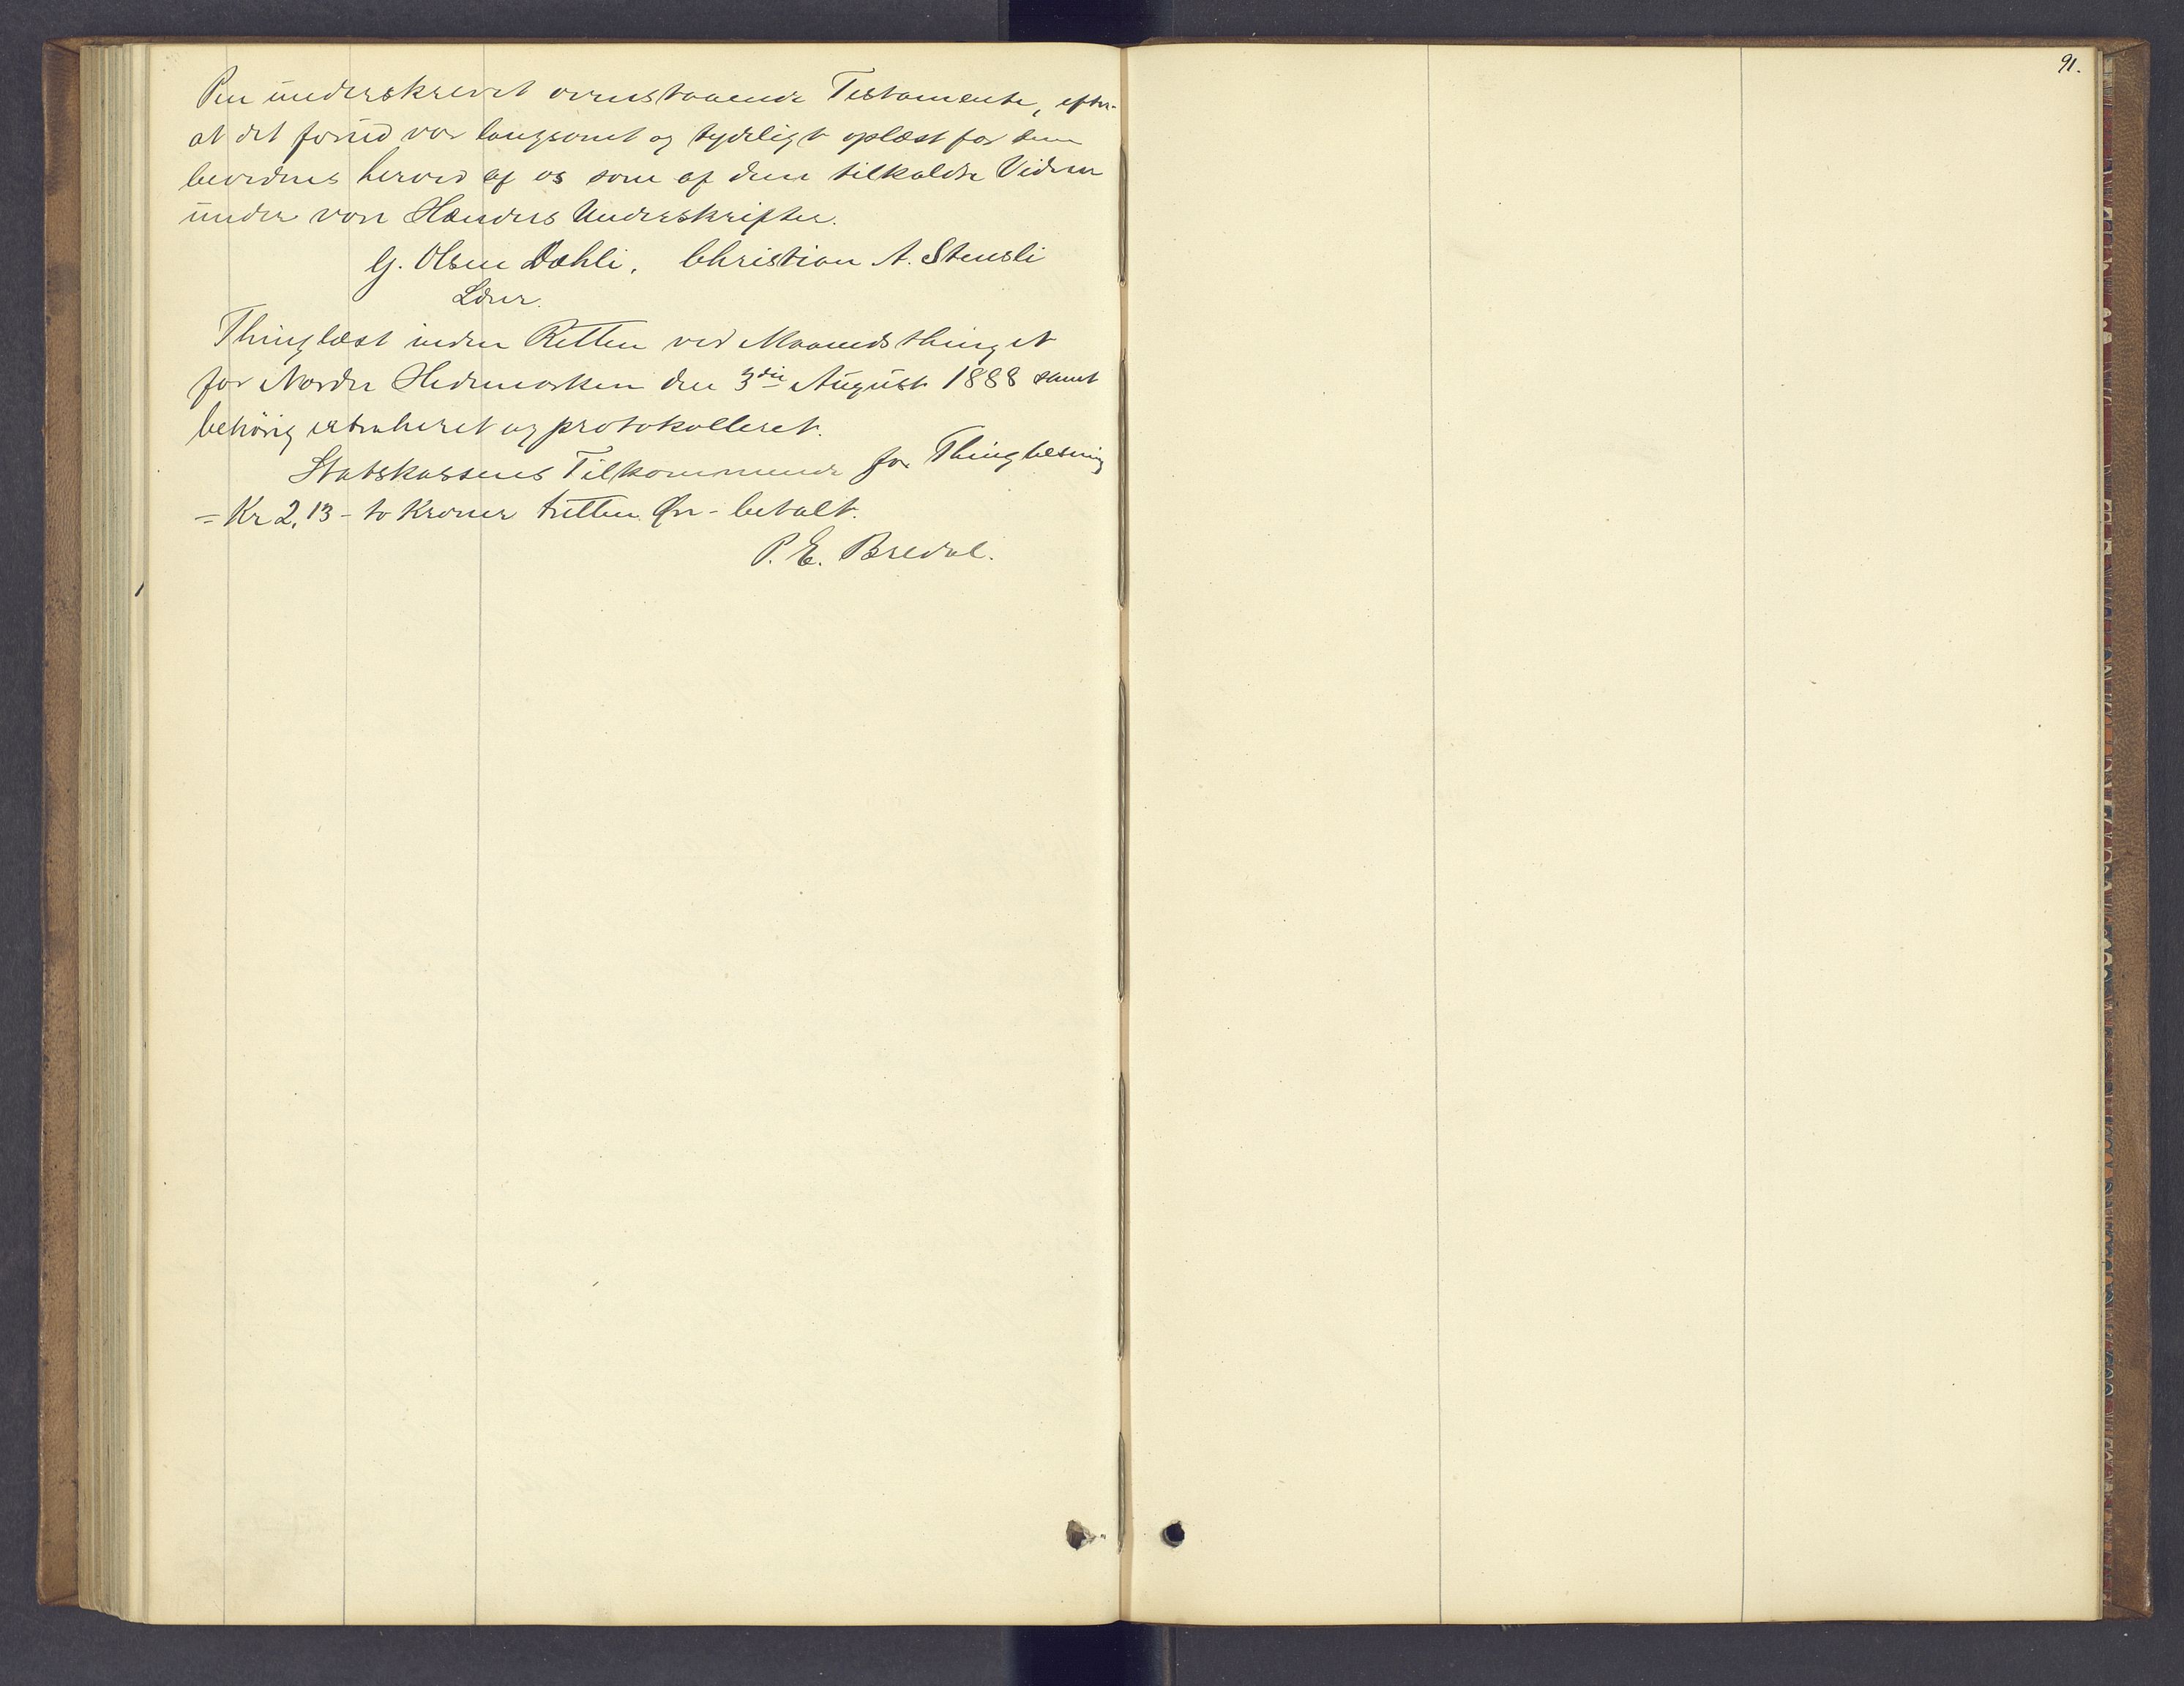 Pen underskrevet ovenstaaende Testamente, efter-
at det forud var langsomt og tydeligt oplæst for dem
bevidnes herved af os som af dem tilkaldte Vidner
under vore Hænders Underskrifter.
G. Olsen Dæhli, Christian A. Stensli
Lærer.
Thinglæst inden Retten ved Maanedsthinget
for Nordre Hedemarken den 3die August 1888 samt
behörig extraheret og protokolleret.
Statskassens Tilkommende for Thinglæsning
= Kr 2,13 - to Kroner tretten Øre - betalt.
P. E. Bredal.
91.